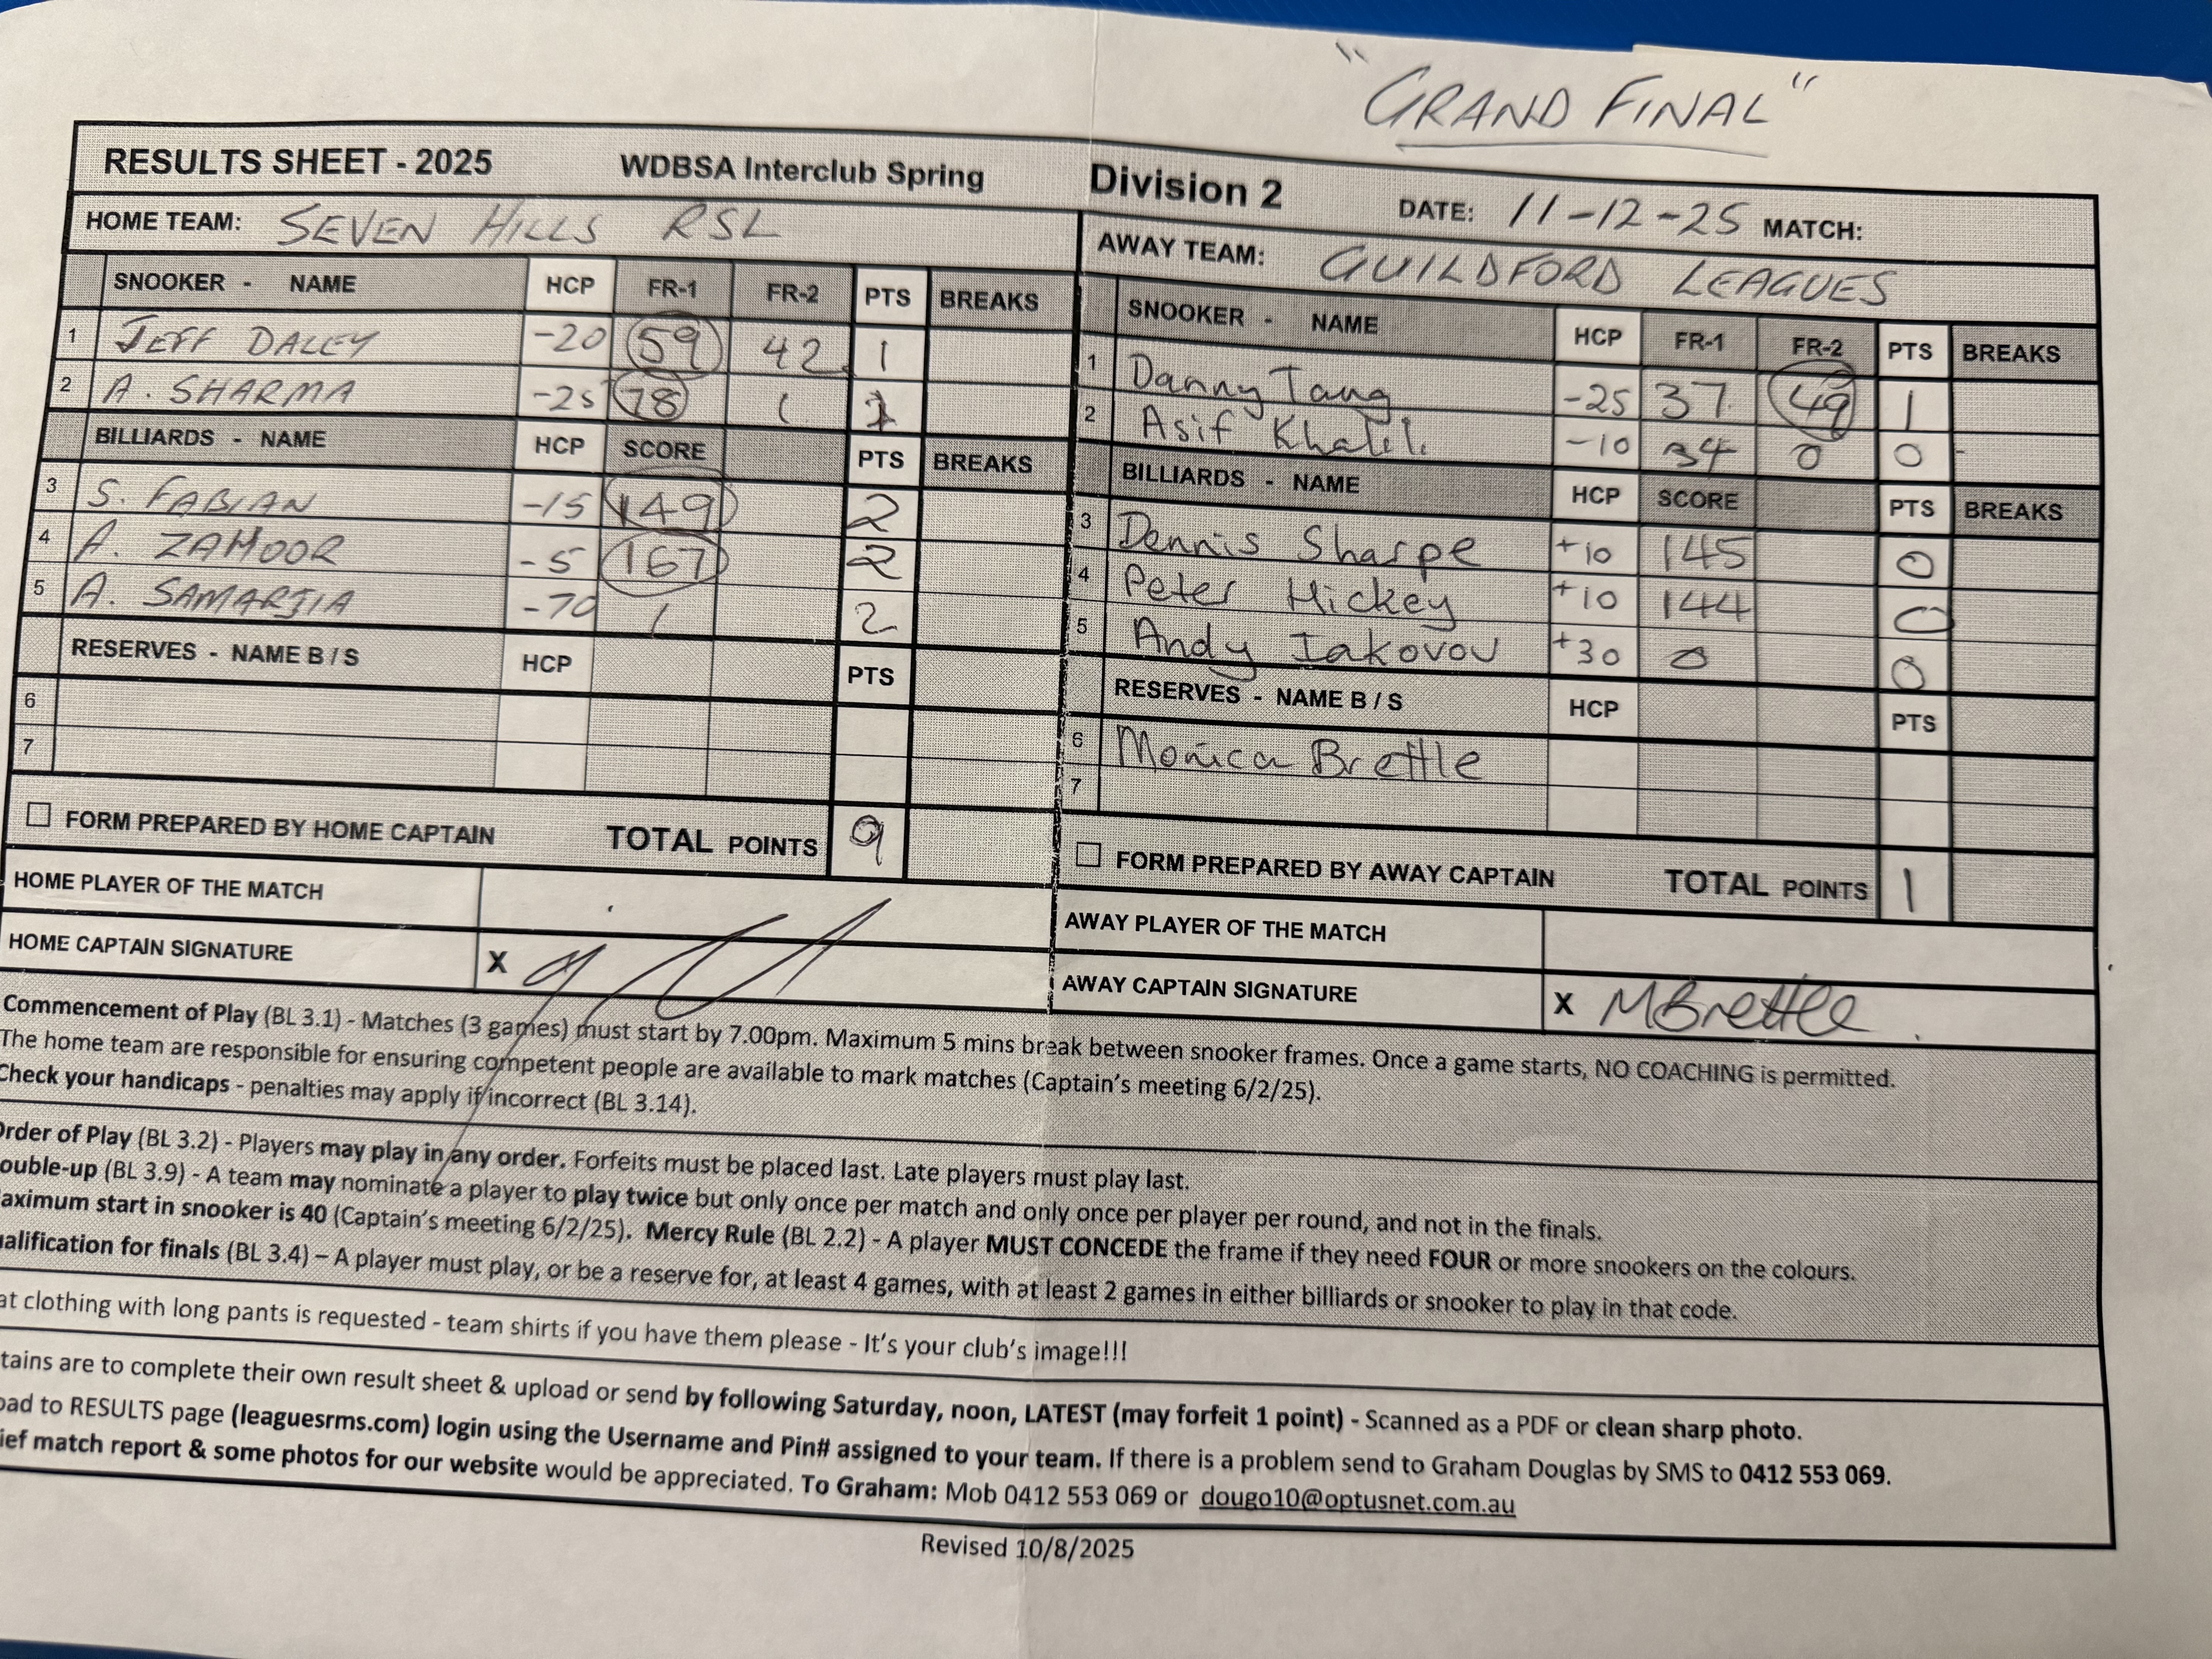 "GRAND FINAL"
RESULTS SHEET - 2025 WDBSA Interclub Spring Division 2 DATE: 11-12-25 MATCH:
HOME TEAM: SEVEN HILLS RSL
AWAY TEAM: GUILDFORD LEAGUES
SNOOKER - NAME HCP FR-1 FR-2 PTS BREAKS
1 JEFF DALEY -20 59 42 1
2 A. SHARMA -25 78 1
BILLIARDS - NAME HCP SCORE PTS BREAKS
3 S. FABIAN -15 149 2
4 A. ZAHOOR -5 167 2
5 A. SAMARJIA -70 1 2
RESERVES - NAME B / S HCP PTS
6
7
FORM PREPARED BY HOME CAPTAIN TOTAL POINTS 9
HOME PLAYER OF THE MATCH
HOME CAPTAIN SIGNATURE X
SNOOKER - NAME HCP FR-1 FR-2 PTS BREAKS
1 Danny Tang -25 37 49 1
2 Asif Khalil -10 34 0 0 -
BILLIARDS - NAME HCP SCORE PTS BREAKS
3 Dennis Sharpe +10 145 0
4 Peter Hickey +10 144 0
5 Andy Iakovou +30 0 0
RESERVES - NAME B / S HCP PTS
6 Monica Brettle
7
FORM PREPARED BY AWAY CAPTAIN TOTAL POINTS 1
AWAY PLAYER OF THE MATCH
AWAY CAPTAIN SIGNATURE X MBrettle
Commencement of Play (BL 3.1) - Matches (3 games) must start by 7.00pm. Maximum 5 mins break between snooker frames. Once a game starts, NO COACHING is permitted.
The home team are responsible for ensuring competent people are available to mark matches (Captain's meeting 6/2/25).
Check your handicaps - penalties may apply if incorrect (BL 3.14).
Order of Play (BL 3.2) - Players may play in any order. Forfeits must be placed last. Late players must play last.
ouble-up (BL 3.9) - A team may nominate a player to play twice but only once per match and only once per player per round, and not in the finals.
aximum start in snooker is 40 (Captain's meeting 6/2/25). Mercy Rule (BL 2.2) - A player MUST CONCEDE the frame if they need FOUR or more snookers on the colours.
alification for finals (BL 3.4) – A player must play, or be a reserve for, at least 4 games, with at least 2 games in either billiards or snooker to play in that code.
at clothing with long pants is requested - team shirts if you have them please - It's your club's image!!!
tains are to complete their own result sheet & upload or send by following Saturday, noon, LATEST (may forfeit 1 point) - Scanned as a PDF or clean sharp photo.
oad to RESULTS page (leaguesrms.com) login using the Username and Pin# assigned to your team. If there is a problem send to Graham Douglas by SMS to 0412 553 069.
ief match report & some photos for our website would be appreciated. To Graham: Mob 0412 553 069 or dougo10@optusnet.com.au
Revised 10/8/2025